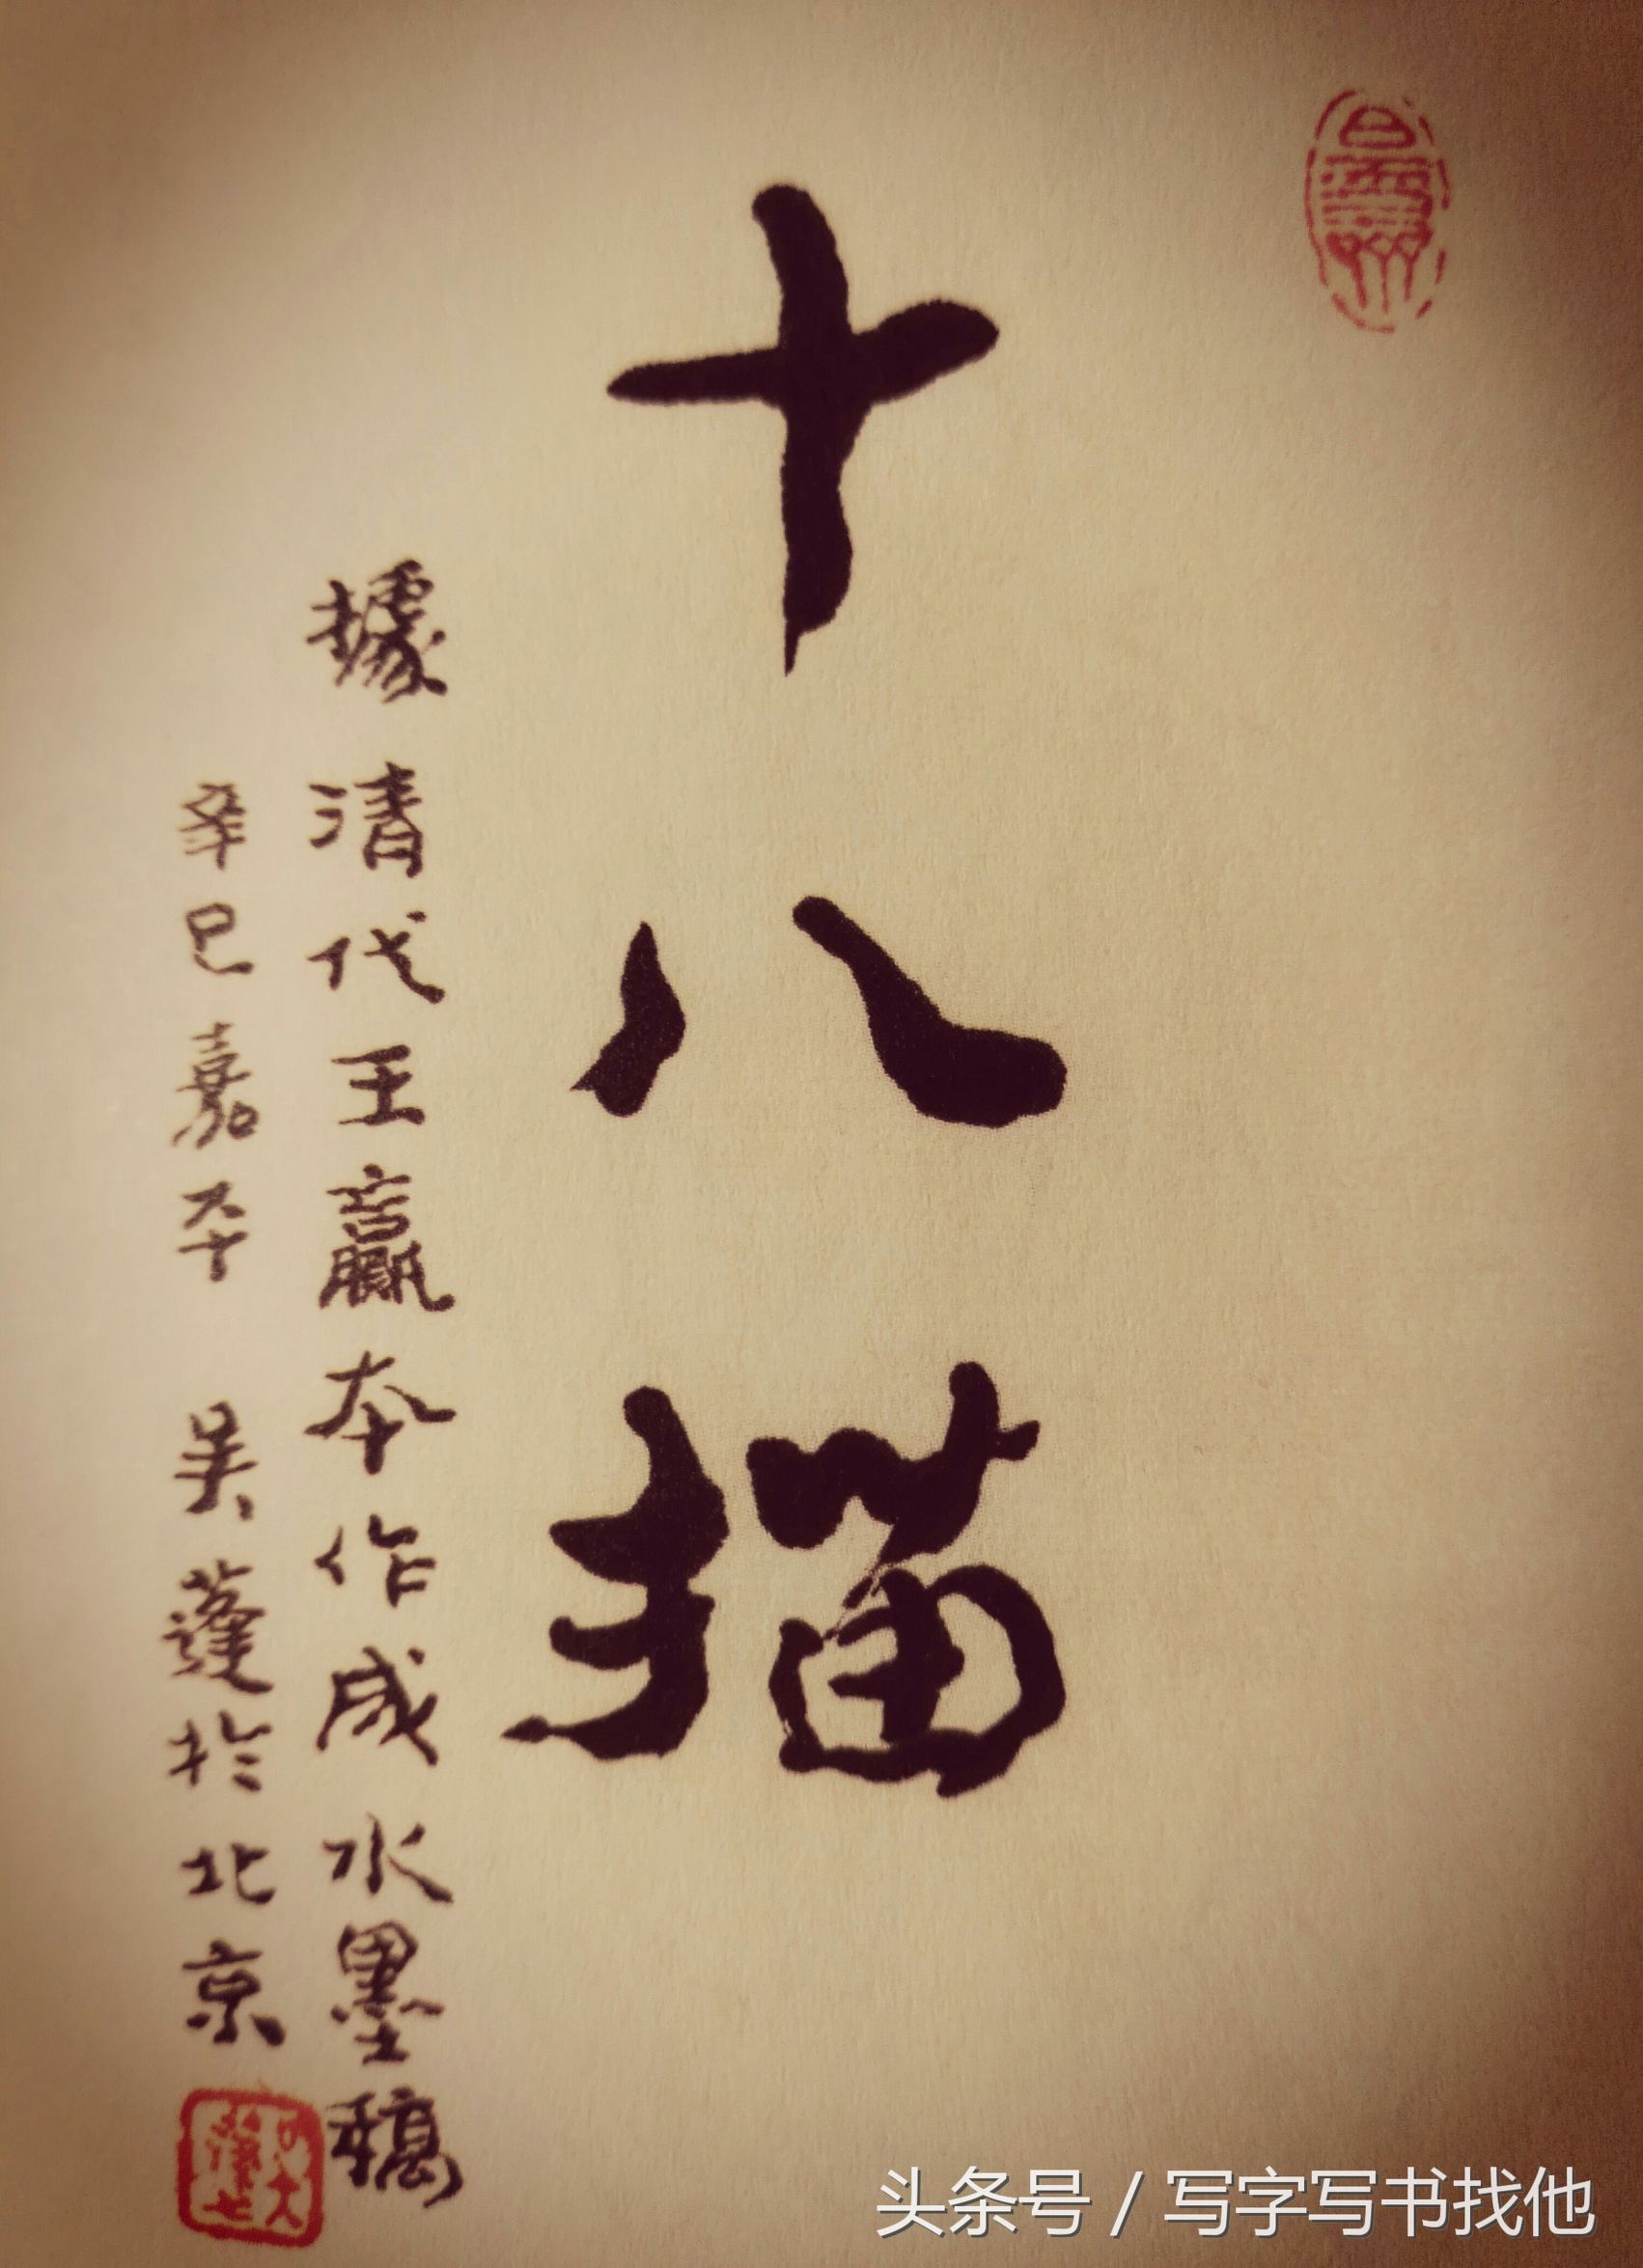 十八描
據清代王瀛本作成水墨稿
辛巳嘉本 吴蓬於北京
头条号 / 写字写书找他